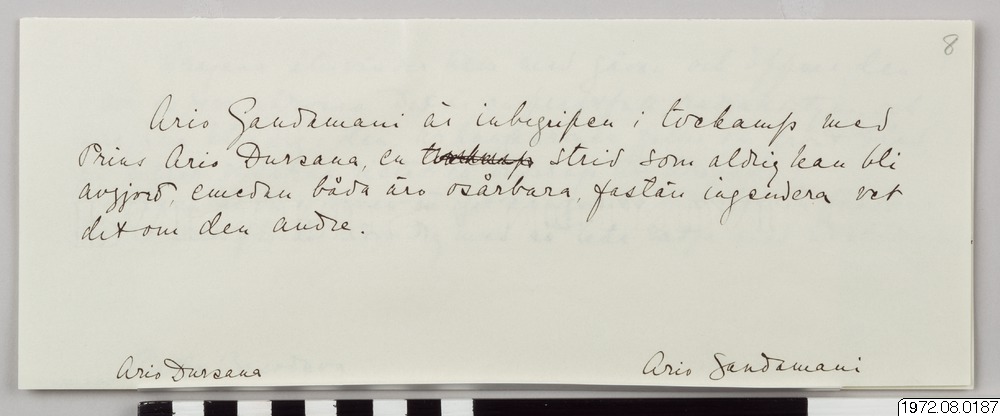 8
Ario Gandamani är inbegripen i tvekamp med
Prins Ario Dursana, en tvekamp strid som aldrig kan bli
avgjord, emedan båda äro osårbara, fastän ingendera vet
det om den andre.
Ario Dursana
Ario Gandamani
1972.08.0187